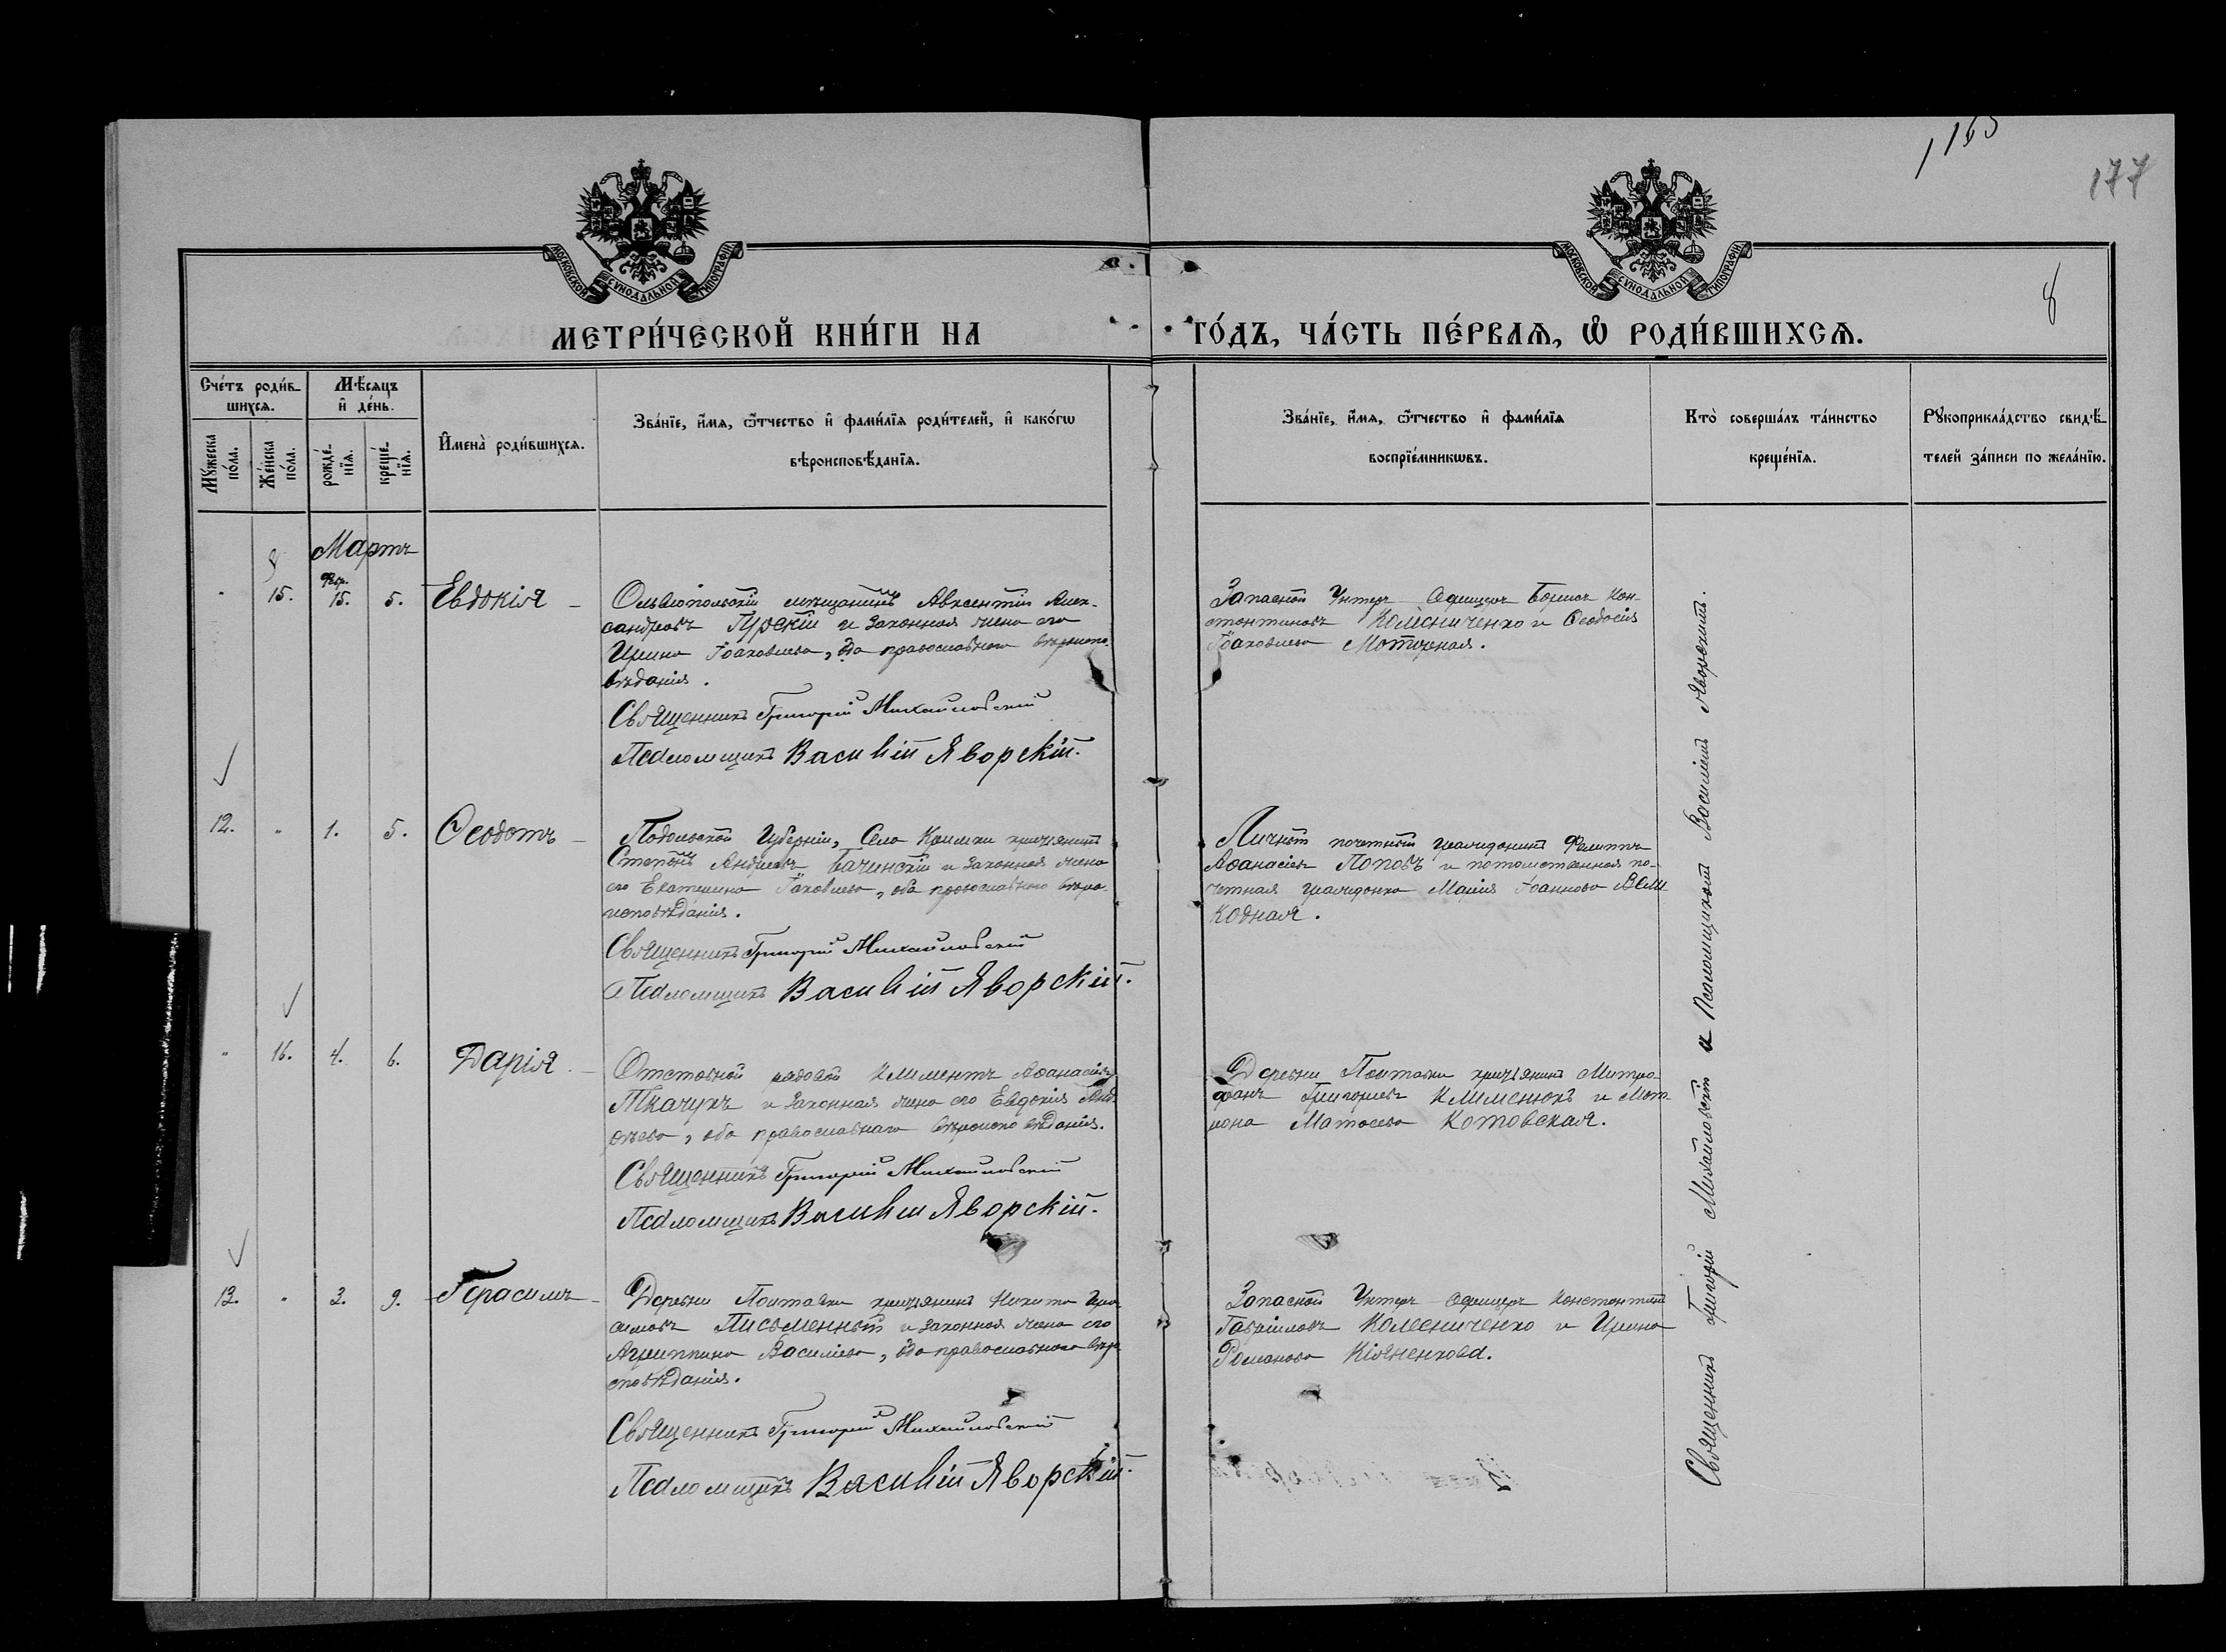 1165
177
8
МОСКОВСКОЙ СѴНОДАЛЬНОЙ ТИПОГРАФІИ
МОСКОВСКОЙ СѴНОДАЛЬНОЙ ТИПОГРАФІИ
МЕТРИ́ЧЕСКОЙ КНИ́ГИ НА
ГО́ДЪ, ЧА́СТЬ ПЕ́РВАѦ, Ѡ҆ РОДИ́ВШИХСѦ.
Сче́тъ роди́в-
шихсѧ.
Мѣ́сѧцъ
и҆ де́нь.
Мꙋ́жеска
по́ла.
Же́нска
по́ла.
рожде́-
нїѧ.
креще́-
нїѧ.
И҆мена̀ роди́вшихсѧ.
Зва́нїе, и҆́мѧ, ѻ҆́тчество и҆ фами́лїѧ роди́телей, и҆ како́гѡ
вѣроисповѣ́данїѧ.
Зва́нїе, и҆́мѧ, ѻ҆́тчество и҆ фами́лїѧ
воспрїе́мникѡвъ.
Кто̀ соверша́лъ та́инство
креще́нїѧ.
Рꙋкоприкла́дство свидѣ́-
телей за́писи по жела́нїю.
Мартъ
15. Февр. 15. 5. Евдокія
Ольвіопольскій мѣщанинъ Авксентій Алек-
сандровъ Гурскій и законная жена его
Ирина Іоаковлева, оба православнаго вѣроиспо-
вѣданія.
Священникъ Григорій Михайловскій
Псаломщикъ Василій Яворскій.
Запасной Унтеръ Офицеръ Борисъ Кон-
стантиновъ Колесниченко и Ѳеодосія
Іоаковлева Моторная.
12. " 1. 5. Ѳеодотъ
Подольской Губерніи, Села Кримки крестьянинъ
Степанъ Андреевъ Бачинскій и законная жена
его Екатерина Іаковлева, оба православнаго вѣро-
исповѣданія.
Священникъ Григорій Михайловскій
Псаломщикъ Василій Яворскій.
Личный почетный гражданинъ Филиппъ
Аѳанасіевъ Поповъ и потомственная по-
четная гражданка Марія Іоаннова Вели-
кодная.
" 16. 4. 6. Дарія
Отставной рядовой Климентъ Аѳанасіевъ
Ткачукъ и законная жена его Евдокія
оба православнаго вѣроисповѣданія.
Священникъ Григорій Михайловскій
Псаломщикъ Василій Яворскій.
Деревни Полтавки крестьянинъ Митро-
фанъ Григорьевъ Клименюкъ и Мат-
рона Матѳеева Котовская.
13. " 3. 9. Герасимъ
Деревни Полтавки крестьянинъ Никита Гера-
симовъ Письменный и законная жена его
Агриппина Василіева, оба православнаго вѣрои-
сповѣданія.
Священникъ Григорій Михайловскій
Псаломщикъ Василій Яворскій.
Запасной Унтеръ Офицеръ Константинъ
Гавріиловъ Колесниченко и Ирина
Романова
Священникъ Григорій Михайловскій и Псаломщикомъ Василіемъ Яворскимъ.